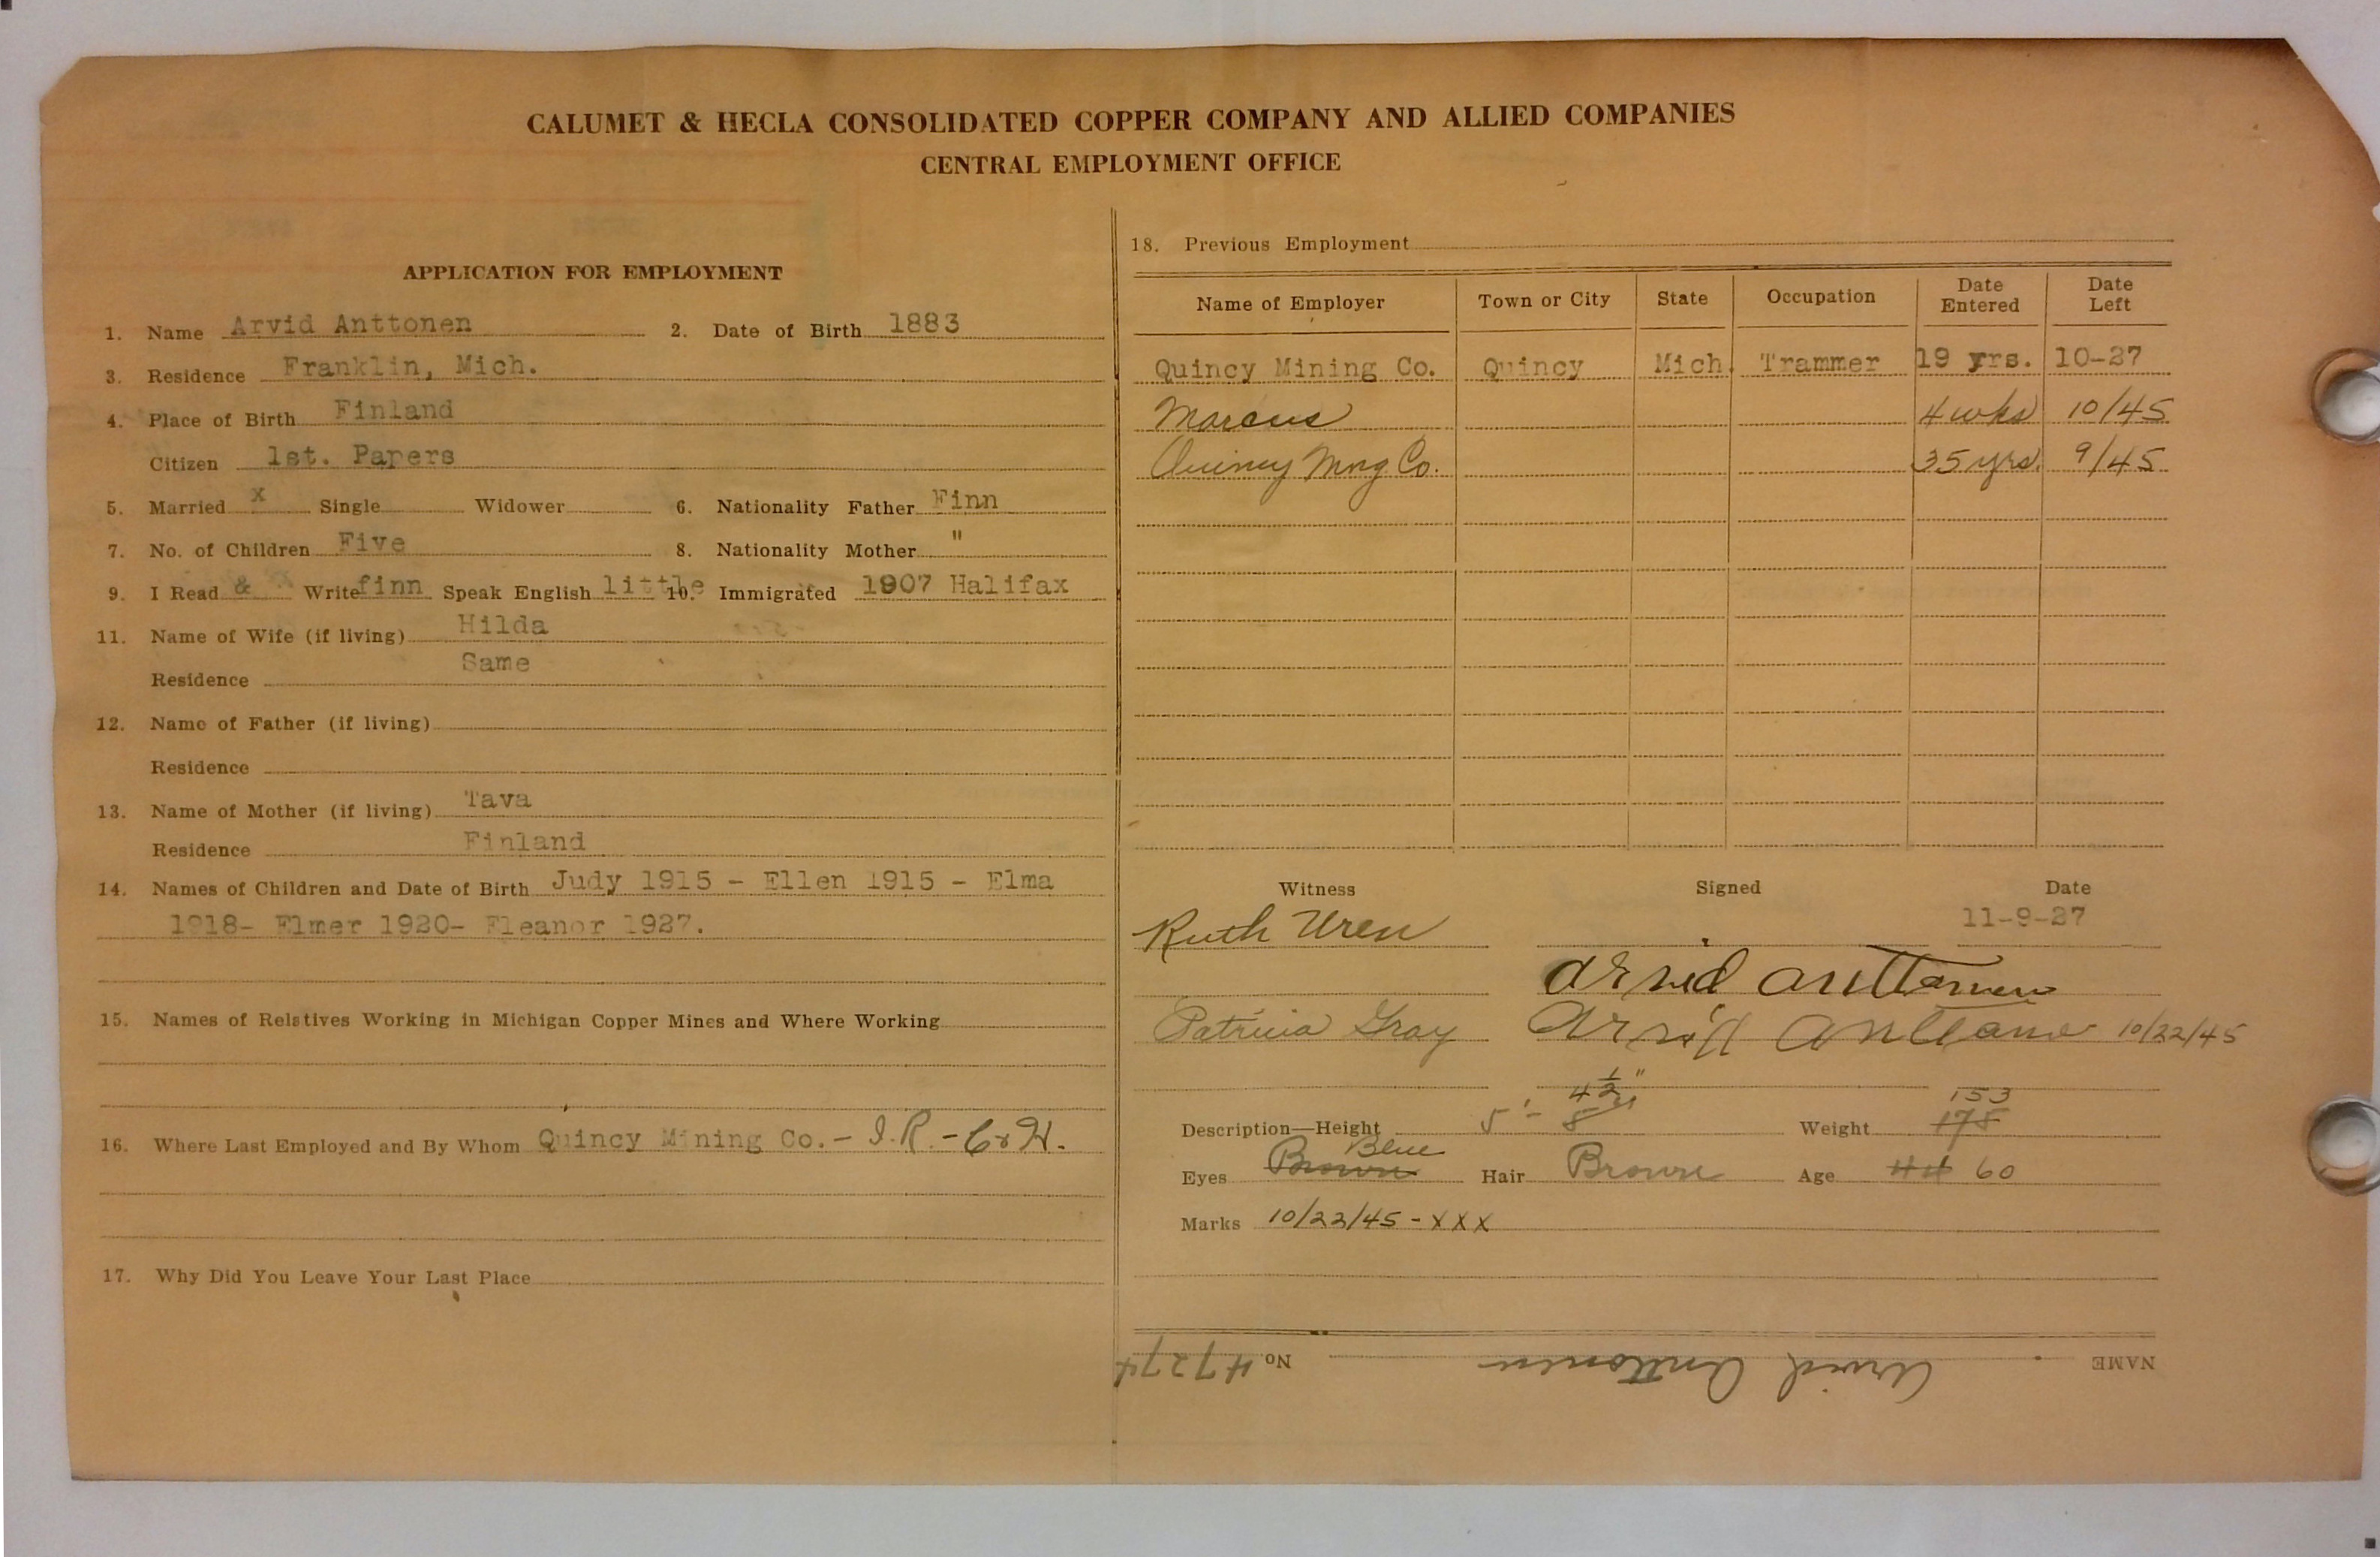 CALUMET & HECLA CONSOLIDATED COPPER COMPANY AND ALLIED COMPANIES
CENTRAL EMPLOYMENT OFFICE
APPLICATION FOR EMPLOYMENT
1. Name Arvid Anttonen 2. Date of Birth 1883
3. Residence Franklin, Mich.
4. Place of Birth Finland
Citizen 1st. Papers
5. Married x Single Widower 6. Nationality Father Finn
7. No. of Children Five 8. Nationality Mother "
9. I Read & Write finn Speak English little 10. Immigrated 1907 Halifax
11. Name of Wife (if living) Hilda
Residence Same
12. Name of Father (if living)
Residence
13. Name of Mother (if living) Tava
Residence Finland
14. Names of Children and Date of Birth Judy 1915 - Ellen 1915 - Elma
1918- Elmer 1920- Eleanor 1927.
15. Names of Relatives Working in Michigan Copper Mines and Where Working
16. Where Last Employed and By Whom Quincy Mining Co. - I.R. - C&H.
17. Why Did You Leave Your Last Place
18. Previous Employment
Name of Employer Town or City State Occupation Date Entered Date Left
Quincy Mining Co. Quincy Mich. Trammer 19 yrs. 10-27
Marcus 4 wks 10/45
Quincy Mng. Co. 35 yrs. 9/45
Witness Signed Date
Ruth Uren 11-9-27
Arvid Anttonen
Patricia Gray Arvid Anttone 10/22/45
4 1/2" 153
Description—Height 5'- 8" Weight 175
Blue
Eyes Brown Hair Brown Age 44 60
Marks 10/22/45 - XXX
NAME Arvid Anttonen No 47274